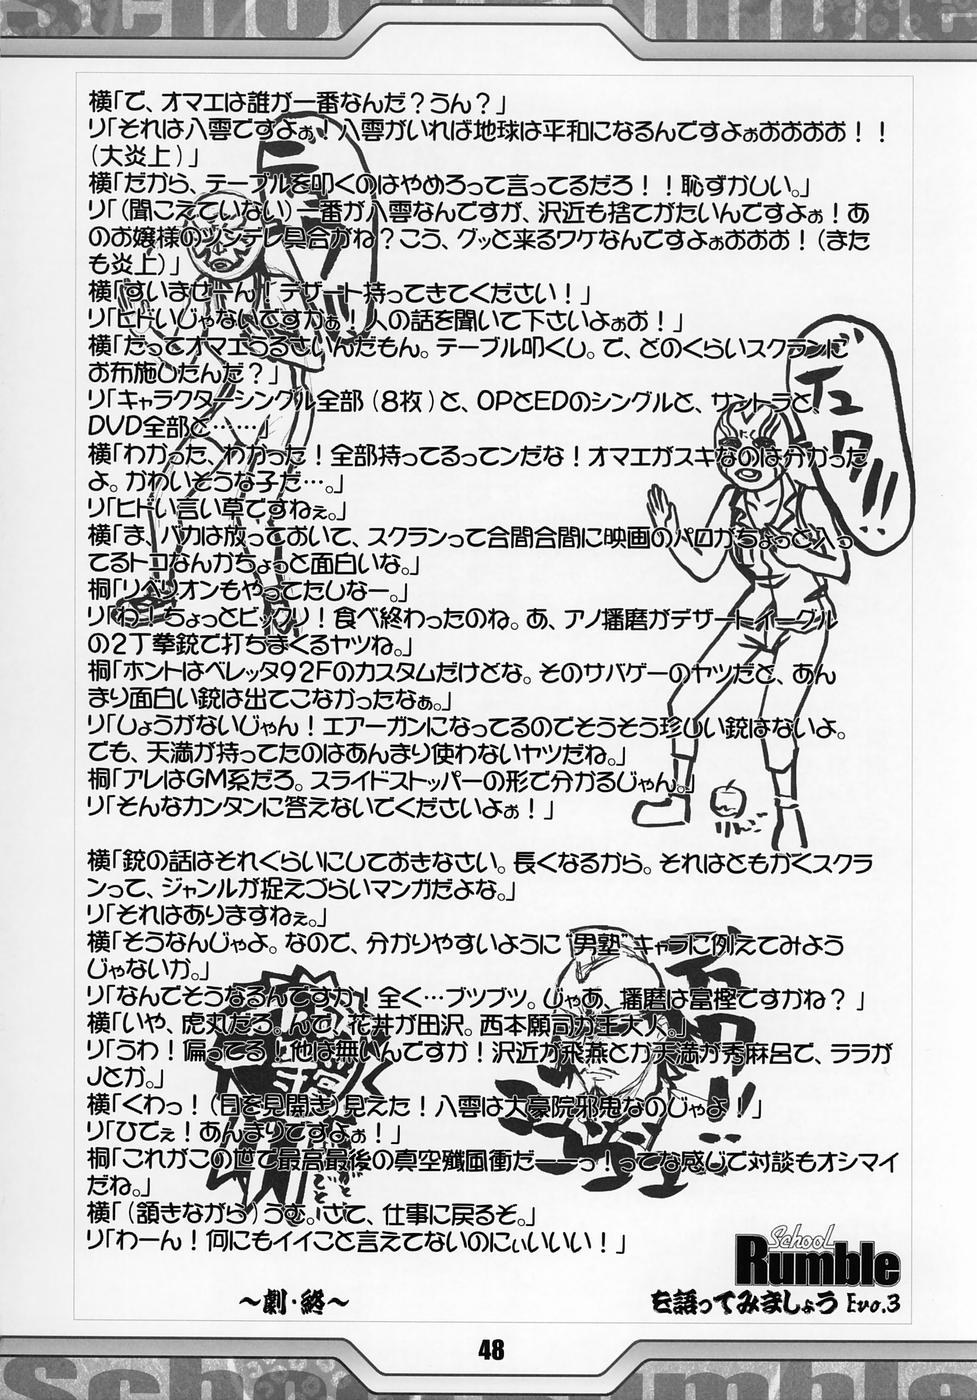 School Rumble
横「で、オマエは誰が一番なんだ？うん？」
リ「それは八雲ですよぉ！八雲がいれば地球は平和になるんですよぉおおおお！！
（大炎上）」
横「だから、テーブルを叩くのはやめろって言ってるだろ！！恥ずかしい。」
リ「（聞こえていない）一番が八雲なんですが、沢近も捨てがたいんですよぉ！あ
のお嬢様のツンデレ具合がね？こう、グッと来るワケなんですよぉおおお！（また
も炎上）」
横「すいませーん！デザート持ってきてください！」
リ「ヒドいじゃないですかぁ！人の話を聞いて下さいよぉお！」
横「だってオマエうるさいんだもん。テーブル叩くし。で、どのくらいスクランに
お布施したんだ？」
リ「キャラクターシングル全部（８枚）と、OPとEDのシングルと、サントラと、
DVD全部と……」
横「わかった、わかった！全部持ってるってンだな！オマエがスキなのは分かった
よ。かわいそうな子だ…。」
リ「ヒドい言い草ですねぇ。」
横「ま、バカは放っておいて、スクランって合間合間に映画のパロがちょっと入っ
てるトコなんかちょっと面白いな。」
桐「リベリオンもやってたしなー。」
リ「わ！ちょっとビックリ！食べ終わったのね。あ、アノ播磨がデザートイーグル
の２丁拳銃で打ちまくるヤツね。」
桐「ホントはベレッタ９２Fのカスタムだけどな。そのサバゲーのヤツだと、あん
まり面白い銃は出てこなかったなぁ。」
リ「しょうがないじゃん！エアーガンになってるのでそうそう珍しい銃はないよ。
でも、天満が持ってたのはあんまり使わないヤツだね。」
桐「アレはGM系だろ。スライドストッパーの形で分かるじゃん。」
リ「そんなカンタンに答えないでくださいよぉ！」
りんご
横「銃の話はそれぐらいにしておきなさい。長くなるから。それはともかくスクラ
ンって、ジャンルが捉えづらいマンガだよな。」
リ「それはありますねぇ。」
横「そうなんじゃよ。なので、分かりやすいように”男塾”キャラに例えてみよう
じゃないか。」
リ「なんでそうなるんですか！全く…ブツブツ。じゃあ、播磨は富樫ですかね？」
横「いや、虎丸だろ。んで、花井が田沢。西本願司が王大人。」
リ「うわ！偏ってる！他は無いんですか！沢近が飛燕とか天満が秀麻呂で、ララが
Jとか。」
横「くわっ！（目を見開き）見えた！八雲は大豪院邪鬼なのじゃよ！」
リ「ひでぇ！あんまりですよぉ！」
桐「これがこの世で最高最後の真空殲風衝だーーっ！ってな感じで対談もオシマイ
だね。」
横「（頷きながら）うむ。さて、仕事に戻るぞ。」
リ「わーん！何にもイイこと言えてないのにぃいいい！」
School
Rumble
を語ってみましょう Evo.3
～劇・終～
48
School Rumble